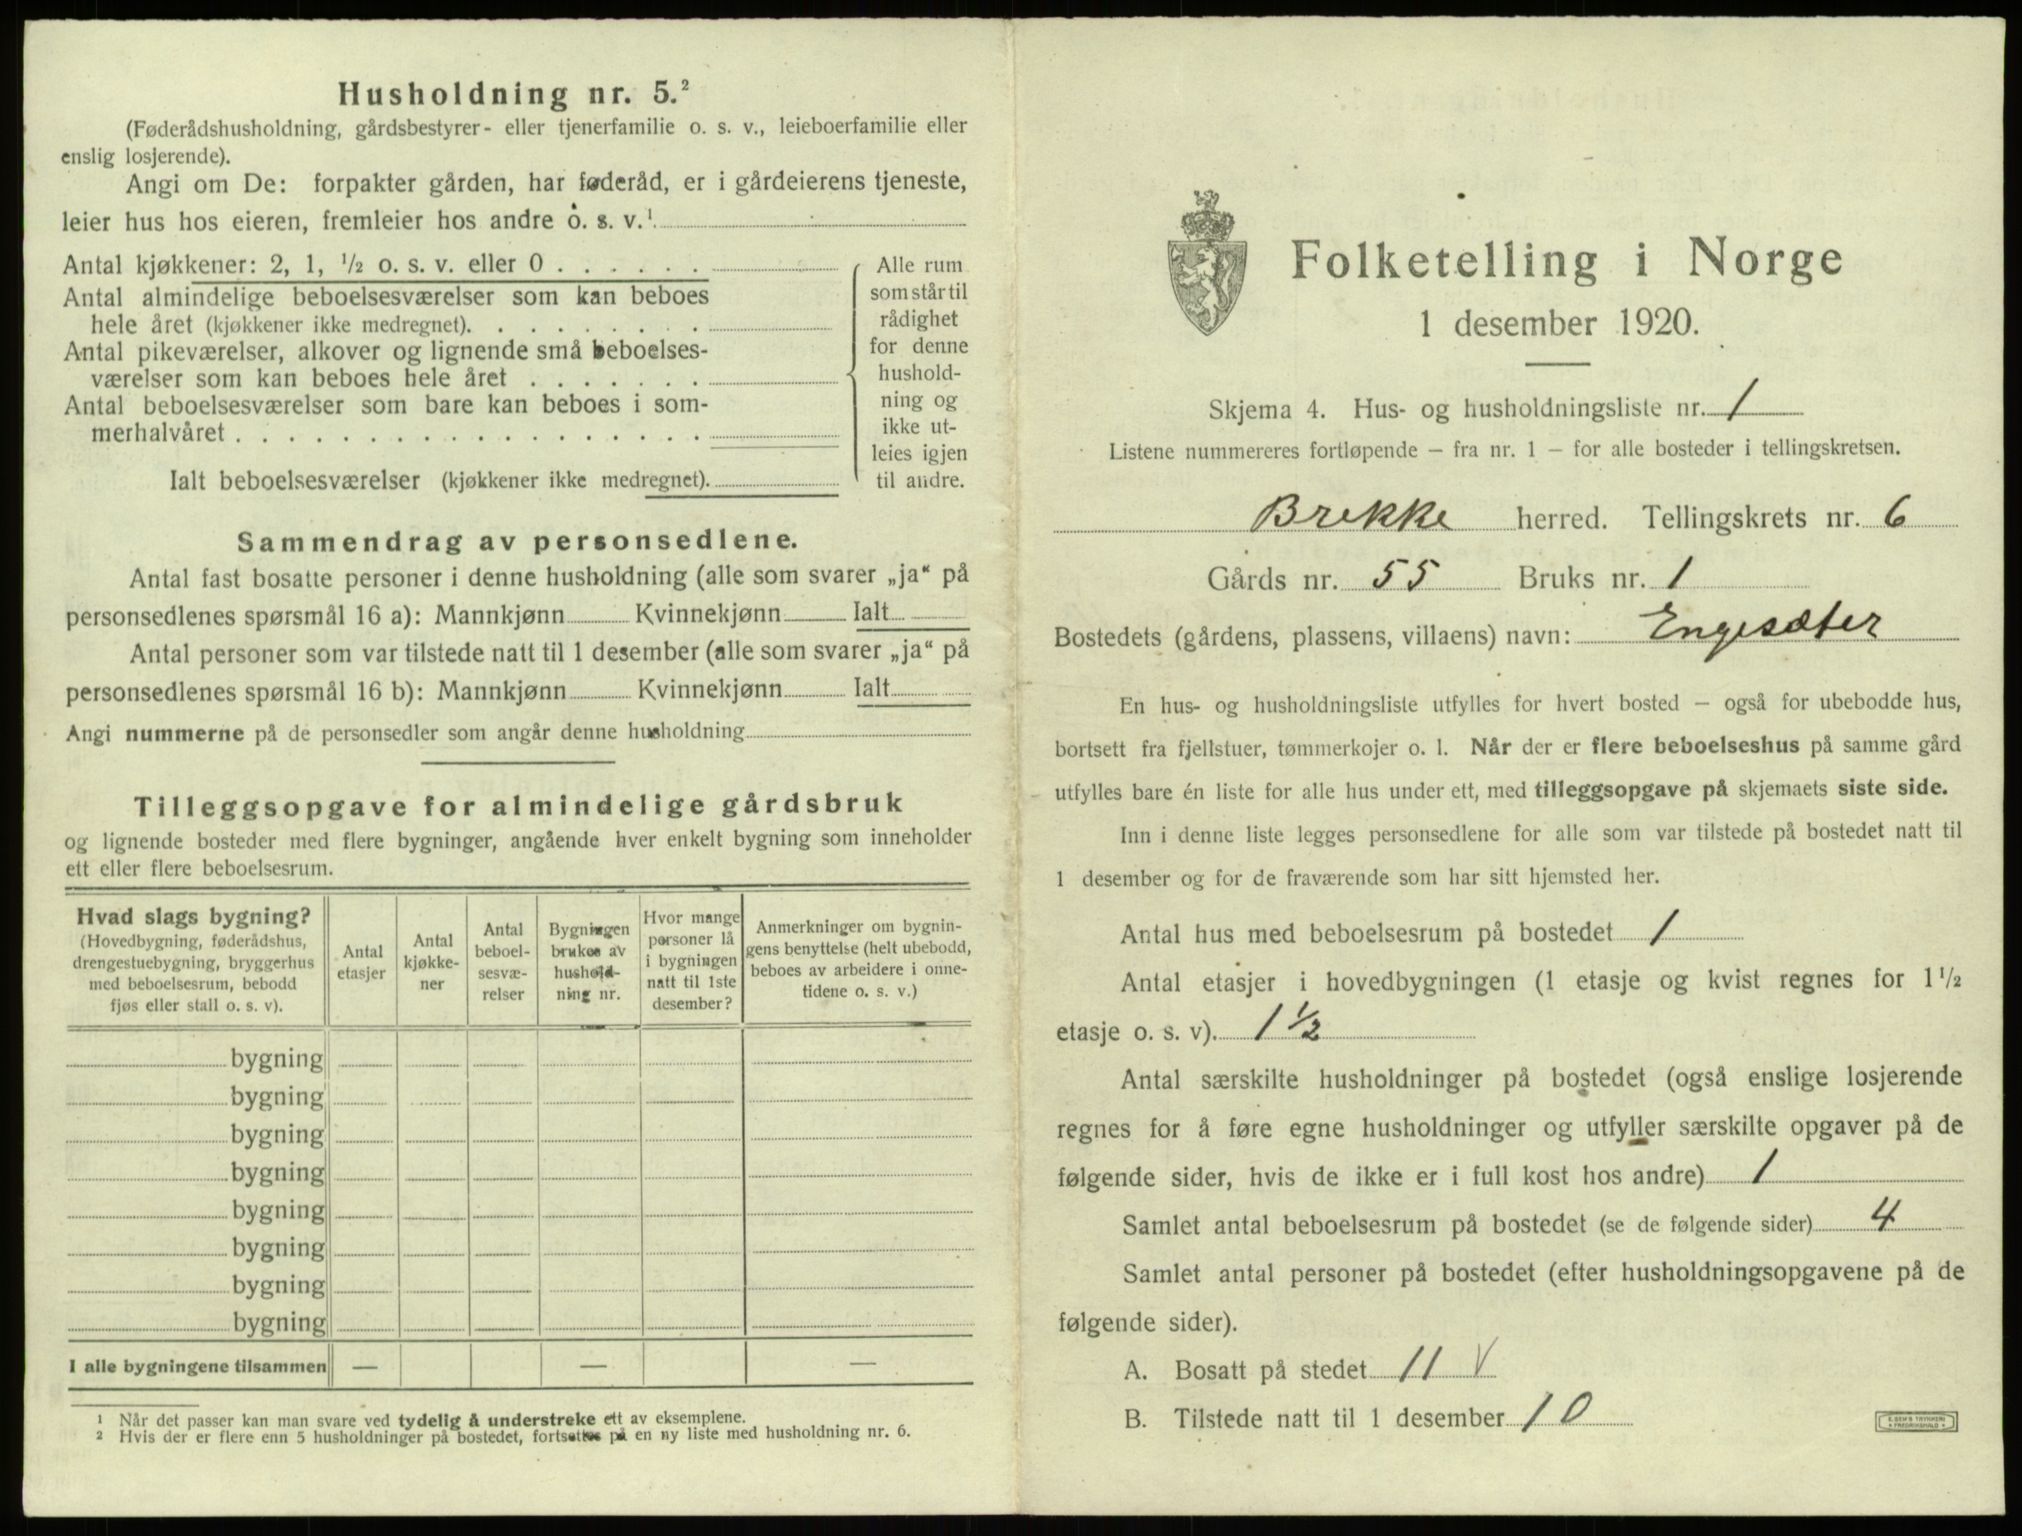 Husholdning nr. 5.²
(Føderådshusholdning, gårdsbestyrer- eller tjenerfamilie o. s. v., leieboerfamilie eller
enslig losjerende).
Angi om De: forpakter gården, har føderåd, er i gårdeierens tjeneste,
leier hus hos eieren, fremleier hos andre o. s. v.¹
Antal kjøkkener: 2, 1, ½ o. s. v. eller 0 . . . . . .
Antal almindelige beboelsesværelser som kan beboes
hele året (kjøkkener ikke medregnet). . . . . . . . .
Antal pikeværelser, alkover og lignende små beboelses-
værelser som kan beboes hele året . . . . . . .
Antal beboelsesværelser som bare kan beboes i som-
merhalvåret . . . . . . . . . . . . . . . . . .
Ialt beboelsesværelser (kjøkkener ikke medregnet).
Alle rum
som står til
rådighet
for denne
hushold-
ning og
ikke ut-
leies igjen
til andre.
Sammendrag av personsedlene.
Antal fast bosatte personer i denne husholdning (alle som svarer „ja“ på
personsedlenes spørsmål 16 a): Mannkjønn Kvinnekjønn Ialt
Antal personer som var tilstede natt til 1 desember (alle som svarer „ja“ på
personsedlenes spørsmål 16 b): Mannkjønn Kvinnekjønn Ialt
Angi nummerne på de personsedler som angår denne husholdning
Tilleggsopgave for almindelige gårdsbruk
og lignende bosteder med flere bygninger, angående hver enkelt bygning som inneholder
ett eller flere beboelsesrum.
Hvad slags bygning?
(Hovedbygning, føderådshus,
drengestuebygning, bryggerhus
med beboelsesrum, bebodd
fjøs eller stall o. s. v).
Antal
etasjer
Antal
kjøkke-
ner
Antal
beboel-
sesvæ-
relser
Bygningen
brukes av
hushold-
ning nr.
Hvor mange
personer lå
i bygningen
natt til 1ste
desember?
Anmerkninger om bygnin-
gens benyttelse (helt ubebodd,
beboes av arbeidere i onne-
tidene o. s. v.)
bygning
bygning
bygning
bygning
bygning
bygning
bygning
bygning
I alle bygningene tilsammen — — —
¹ Når det passer kan man svare ved tydelig å understreke ett av eksemplene.
² Hvis der er flere enn 5 husholdninger på bostedet, fortsettes på en ny liste med husholdning nr. 6.
Folketelling i Norge
1 desember 1920.
Skjema 4. Hus- og husholdningsliste nr. 1
Listene nummereres fortløpende – fra nr. 1 – for alle bosteder i tellingskretsen.
Brekke herred. Tellingskrets nr. 6
Gårds nr. 55 Bruks nr. 1
Bostedets (gårdens, plassens, villaens) navn: Engesæter
En hus- og husholdningsliste utfylles for hvert bosted – også for ubebodde hus,
bortsett fra fjellstuer, tømmerkojer o. l. Når der er flere beboelseshus på samme gård
utfylles bare én liste for alle hus under ett, med tilleggsopgave på skjemaets siste side.
Inn i denne liste legges personsedlene for alle som var tilstede på bostedet natt til
1 desember og for de fraværende som har sitt hjemsted her.
Antal hus med beboelsesrum på bostedet 1
Antal etasjer i hovedbygningen (1 etasje og kvist regnes for 1½
etasje o. s. v). 1½
Antal særskilte husholdninger på bostedet (også enslige losjerende
regnes for å føre egne husholdninger og utfyller særskilte opgaver på de
følgende sider, hvis de ikke er i full kost hos andre) 1
Samlet antal beboelsesrum på bostedet (se de følgende sider) 4
Samlet antal personer på bostedet (efter husholdningsopgavene på de
følgende sider).
A. Bosatt på stedet 11 V
B. Tilstede natt til 1 desember 10